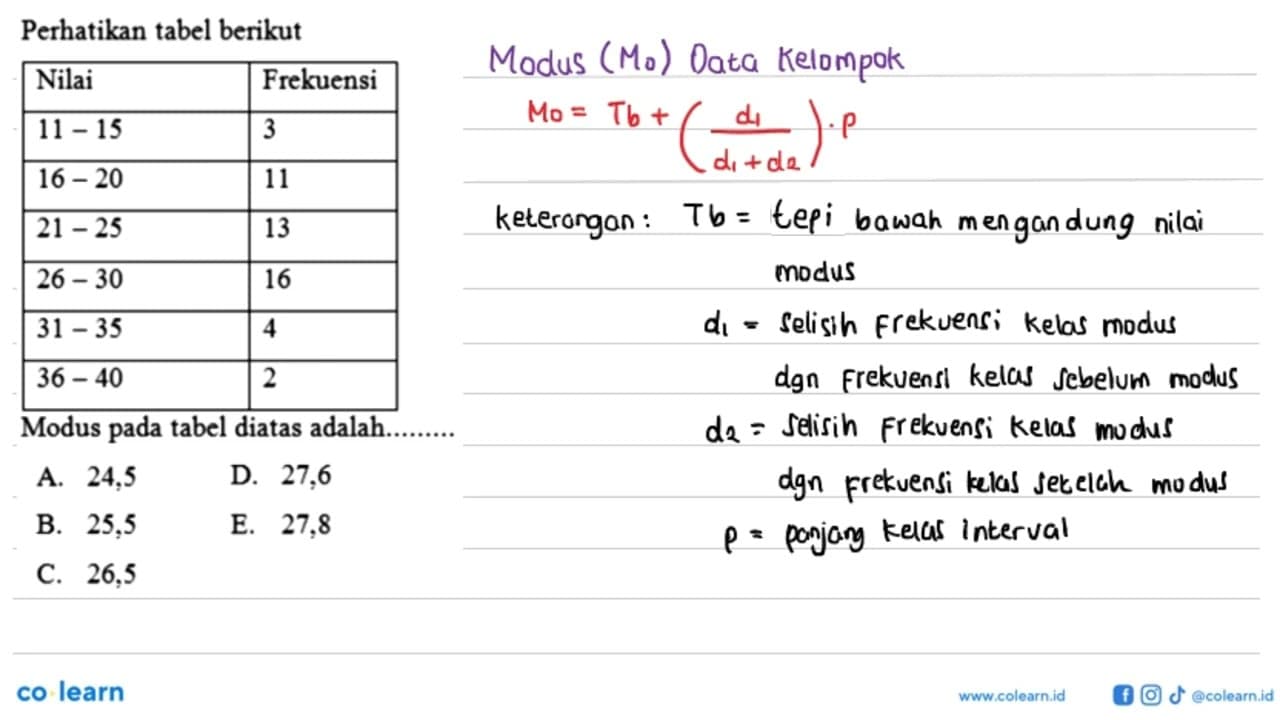 Perhatikan tabel berikut
Nilai Frekuensi
11 – 15 3
16 – 20 11
21 – 25 13
26 – 30 16
31 – 35 4
36 – 40 2
Modus pada tabel diatas adalah.........
A. 24,5 D. 27,6
B. 25,5 E. 27,8
C. 26,5
Modus (Mo) Data Kelompok
Mo = Tb + (d1 / d1 + d2) . p
keterangan: Tb = tepi bawah mengandung nilai
modus
d1 = selisih Frekuensi kelas modus
dgn Frekuensi kelas sebelum modus
d2 = selisih Frekuensi kelas modus
dgn frekuensi kelas setelah modus
p = panjang kelas interval
co learn
www.colearn.id @colearn.id